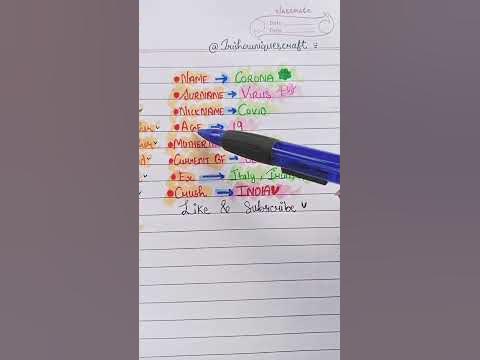 classmate
Date
Page
@Trishauniquescraft
• NAME → CORONA
• SURNAME → VIRUS
• NICKNAME → COVID
• AGE → 19
• MOTHER
• CURRENT GF →
• Ex → Italy,
• Crush → INDIA
Like & Subscribe